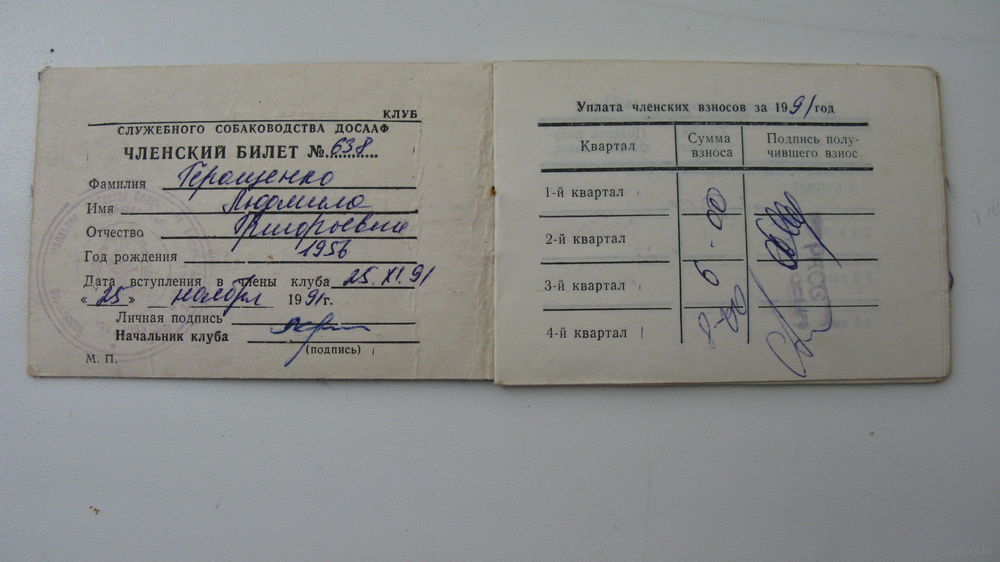 КЛУБ
СЛУЖЕБНОГО СОБАКОВОДСТВА ДОСААФ
ЧЛЕНСКИЙ БИЛЕТ № 638
Фамилия Геращенко
Имя Людмила
Отчество Григорьевна
Год рождения 1956
Дата вступления в члены клуба 25.XI.91
«25» ноября 1991г.
Личная подпись
Начальник клуба
(подпись)
М. П.
Уплата членских взносов за 1991 год
Квартал Сумма взноса Подпись полу-чившего взнос
1-й квартал
2-й квартал
3-й квартал
4-й квартал